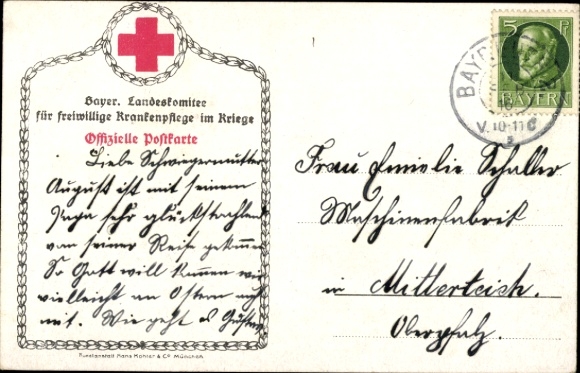 Bayer. Landeskomitee
für freiwillige Krankenpflege im Kriege
Offizielle Postkarte
Liebe Schwiegermutter
August ist mit seinem
sehr glückstrahlend
von seiner Reise gekommen
So Gott will kommen wir
vielleicht an Ostern auch
mit. Wie geht es
Kunstanstalt Hans Kohler & Co. München
5 Pf
BAYERN
BAY
V.10-11
Frau Emmelie Schaller
Maschinenfabrik
in Mitterteich.
Oberpfalz.